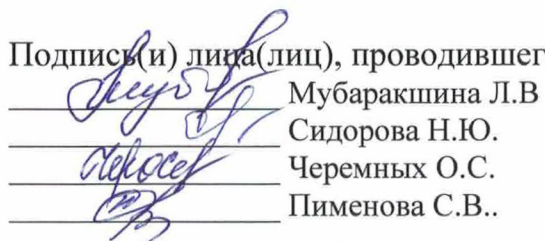 Подпись(и) лица(лиц), проводившег
Мубаракшина Л.В
Сидорова Н.Ю.
Черемных О.С.
Пименова С.В..